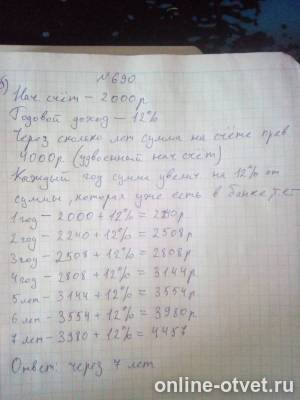 №690.
б) Нач счёт – 2000р
Годовой доход – 12%
Через сколько лет сумма на счете прев
4000р. (удвоенный нач счет)
Каждый год сумма увелич на 12% от
суммы, которая уже есть в банке, т.е
1 год – 2000 + 12% = 2240р
2 год – 2240 + 12% = 2508р
3 год – 2508 + 12% = 2808р
4 год – 2808 + 12% = 3144р
5 лет – 3144 + 12% = 3554р
6 лет – 3554 + 12% = 3980р
7 лет – 3980 + 12% = 4457
Ответ: через 7 лет
online-otvet.ru